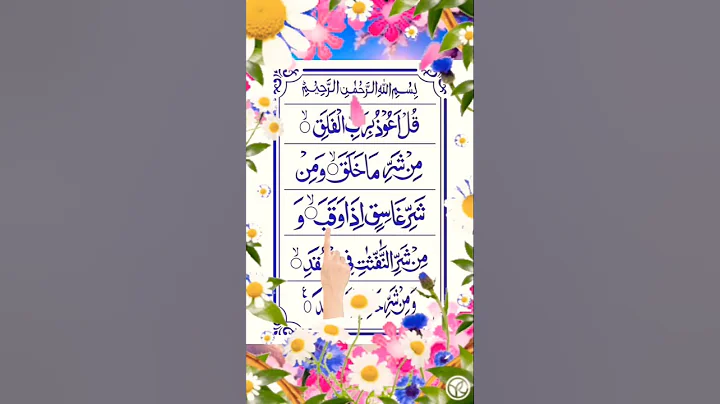 بِسْمِ اللهِ الرَّحْمٰنِ الرَّحِيْمِ
قُلْ اَعُوْذُ بِرَبِّ الْفَلَقِۙ
مِنْ شَرِّ مَا خَلَقَۙ وَمِنْ
شَرِّ غَاسِقٍ اِذَا وَقَبَۙ وَ
مِنْ شَرِّ النَّفّٰثٰتِ فِی
وَمِنْ شَرِّ